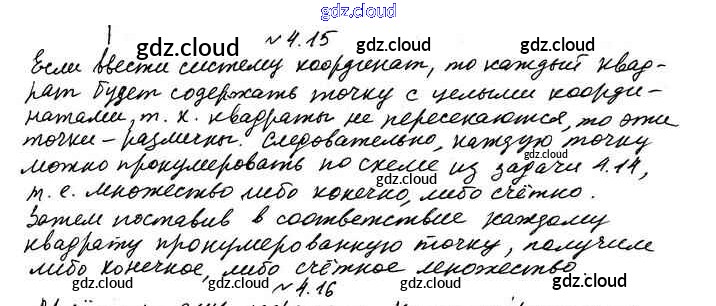 gdz.cloud
№ 4.15
gdz.cloud gdz.cloud gdz.cloud
Если ввести систему координат, то каждый квад-
рат будет содержать точку с целыми коорди-
gdz.cloud gdz.cloud
натами, т. к. квадраты не пересекаются, то эти
точки – различны. Следовательно, каждую точку
gdz.cloud
можно пронумеровать по схеме из задачи 4.14,
gdz.cloud gdz.cloud
т. е. множество либо конечно, либо счётно.
gdz.cloud
Затем поставив в соответствие каждому
квадрату пронумерованную точку, получим
gdz.cloud gdz.cloud gdz.cloud
либо конечное, либо счётное множество
№ 4.16
gdz.cloud